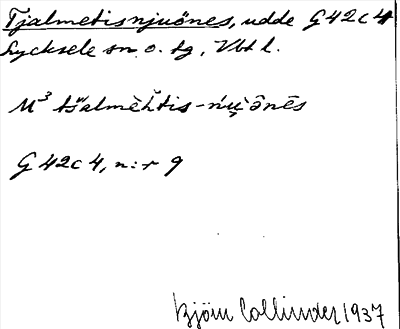 Tjalmetisnjuönes, udde G 42 c 4
Lycksele sn o. tg, Vbt l.
M³ tšalmèh̆tis-ńu̯ònēs
G 42c 4, n:r 9
Björn Collinder 1937